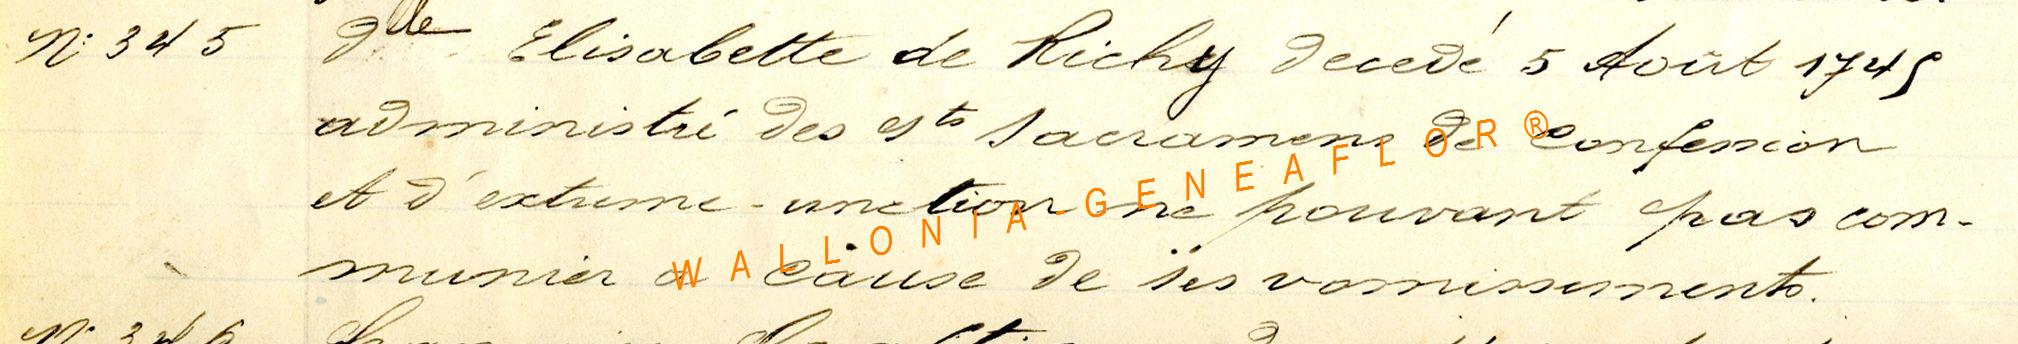 N: 345 Dlle Elisabette de Richy decedé 5 Août 1745
administré des Sts Sacramens de Confession
et d'extreme-unction ne pouvant pas com-
munier a cause de ses vomissements.
WALLONIA-GENEAFLOR®
N: 346